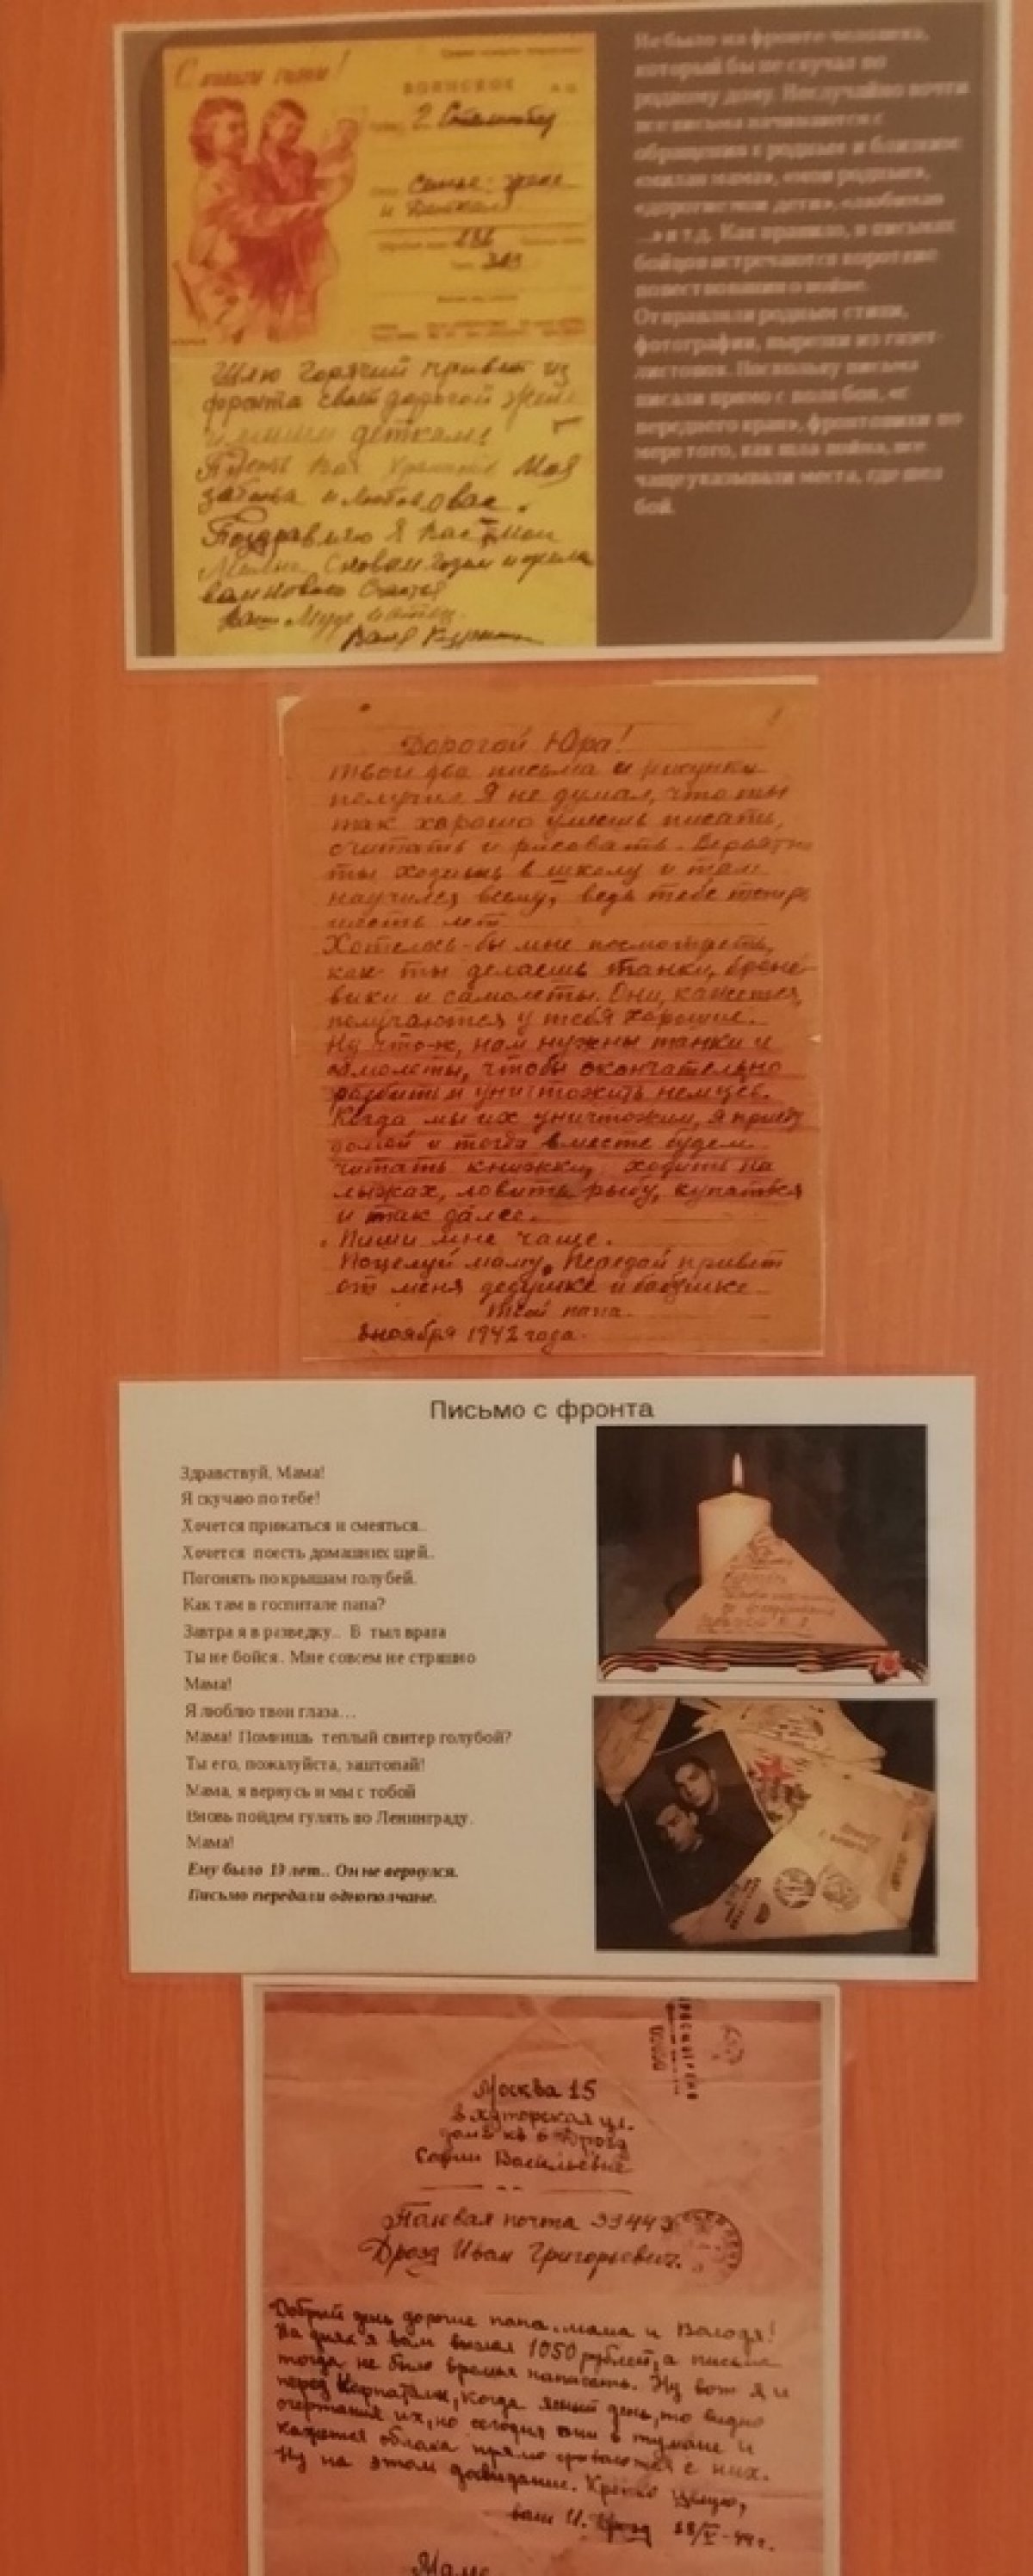 С новым годом!
ВОИНСКОЕ
г. Сталинбад
Семье: жене
и Деткам
Шлю Горячий привет из
фронта своей дорогой жене
и милым деткам!
Пусть вас хранит Моя
забота и любовь о вас.
Поздравляю я вас мои
Милые с новым годом и желаю
вам нового счастья
Ваш Муж и отец
Ваня
Не было на фронте человека,
который бы не скучал по
родному дому. Неслучайно почти
все письма начинаются с
обращения к родным и близким:
«милая мама», «мои родные»,
«дорогие мои дети», «любимая
...» и т.д. Как правило, в письмах
бойцов встречаются короткие
повествования о войне.
Отправляли родным стихи,
фотографии, вырезки из газет-
листовок. Поскольку письма
писали прямо с поля боя, «с
переднего края», фронтовики по
мере того, как шла война, все
чаще указывали места, где шел
бой.
Дорогой Юра!
Твои два письма и рисунки
получил Я не думал, что ты
так хорошо умеешь писать,
считать и рисовать. Вероятно
ты ходишь в школу и там
научился всему, ведь тебе теперь
шесть лет
Хотелось-бы мне посмотреть,
как ты делаешь танки, броне-
вики и самолеты. Они, кажется,
получаются у тебя хорошие.
Ну что-ж, нам нужны танки и
самолеты, чтобы окончательно
разбить и уничтожить немцев.
Когда мы их уничтожим, я приеду
домой и тогда вместе будем
читать книжки, ходить на
лыжах, ловить рыбу, купаться
и так далее.
Пиши мне чаще.
Поцелуй маму. Передай привет
от меня дедушке и бабушке.
Твой папа.
8 ноября 1942 года.
Письмо с фронта
Здравствуй, Мама!
Я скучаю по тебе!
Хочется прижаться и смеяться..
Хочется поесть домашних щей..
Погонять по крышам голубей.
Как там в госпитале папа?
Завтра я в разведку.. В тыл врага
Ты не бойся. Мне совсем не страшно
Мама!
Я люблю твои глаза…
Мама! Помнишь теплый свитер голубой?
Ты его, пожалуйста, заштопай!
Мама, я вернусь и мы с тобой
Вновь пойдем гулять по Ленинграду.
Мама!
Ему было 19 лет.. Он не вернулся.
Письмо передали однополчане.
Москва 15
в хуторская ул.
дом 2 кв 6 Дрозд
Софии Васильевне
Полевая почта 33443
Дрозд Иван Григорьевич.
Добрый день дорогие папа, мама и Володя!
На днях я вам выслал 1050 рублей, а письма
тогда не было время написать. Ну вот я и
перед Карпатами, когда ясный день, то видно
очертания их, но сегодня они в тумане и
кажется облака прямо срываются с них.
Ну на этом досвидание. Крепко целую,
ваш И. Дрозд 18/X-44 г.
Маме